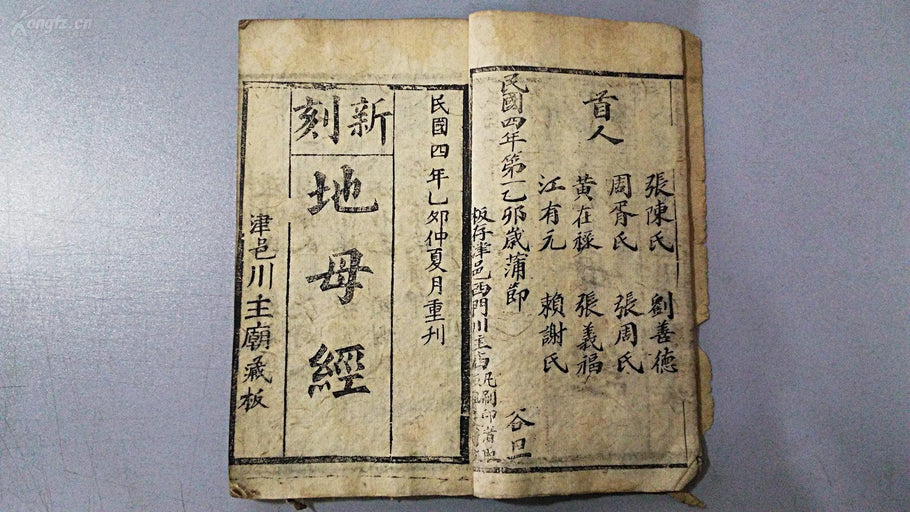 首人
張陳氏 劉善德
周胥氏 張周氏
黄在祿 張義福
江有元 賴謝氏
民國四年第一乙卯歲蒲節 谷旦
板存津邑西門川主庙 凡刷印者
民國四年乙卯仲夏月重刊
新刻
地母經
津邑川主廟藏板
Kongfz.cn